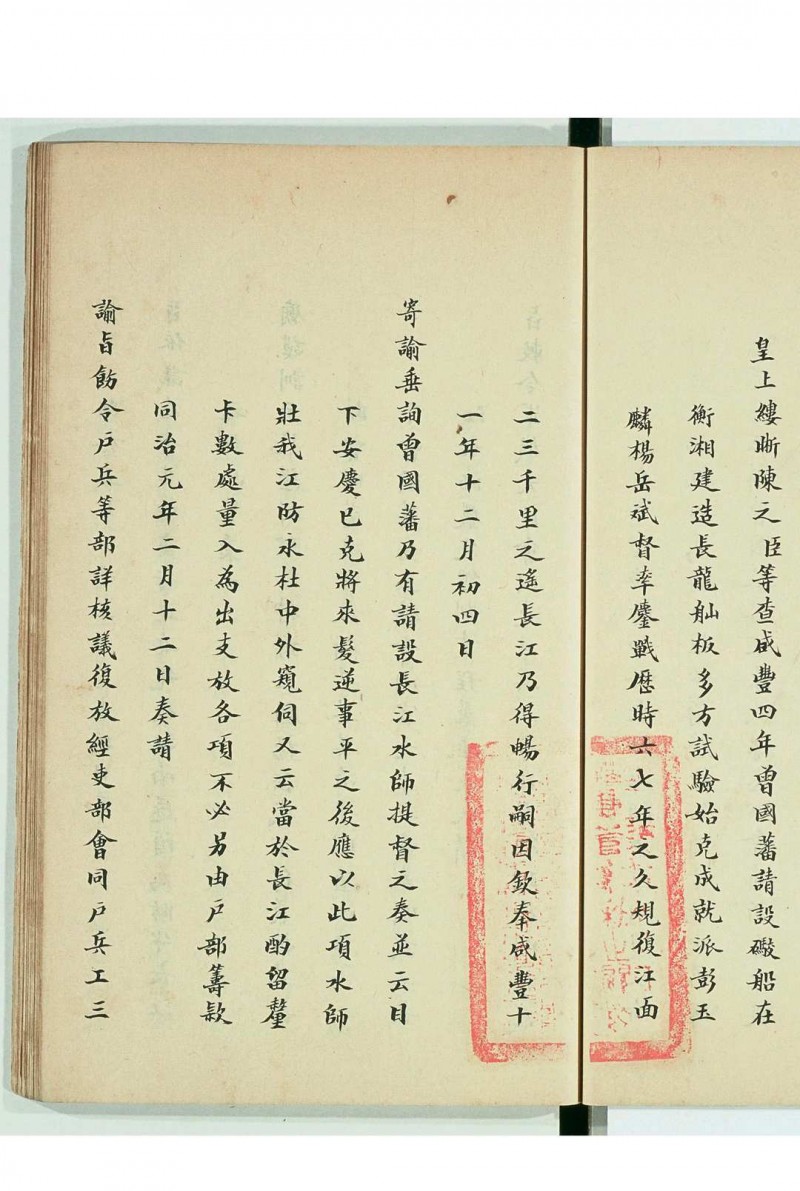 皇上縷晰陳之臣等查咸豐四年曾國藩請設礮船在
衡湘建造長龍舢板多方試驗始克成就派彭玉
麟楊岳斌督率鏖戰歷時六七年之久規復江面
二三千里之遙長江乃得暢行嗣因欽奉咸豐十
一年十二月初四日
寄諭垂詢曾國藩乃有請設長江水師提督之奏並云目
下安慶已克將來髮逆事平之後應以此項水師
壯我江防永杜中外窺伺又云當於長江酌留釐
卡數處量入為出支放各項不必另由戶部籌款
同治元年二月十二日奏請
諭旨飭令戶兵等部詳核議復放經吏部會同戶兵工三